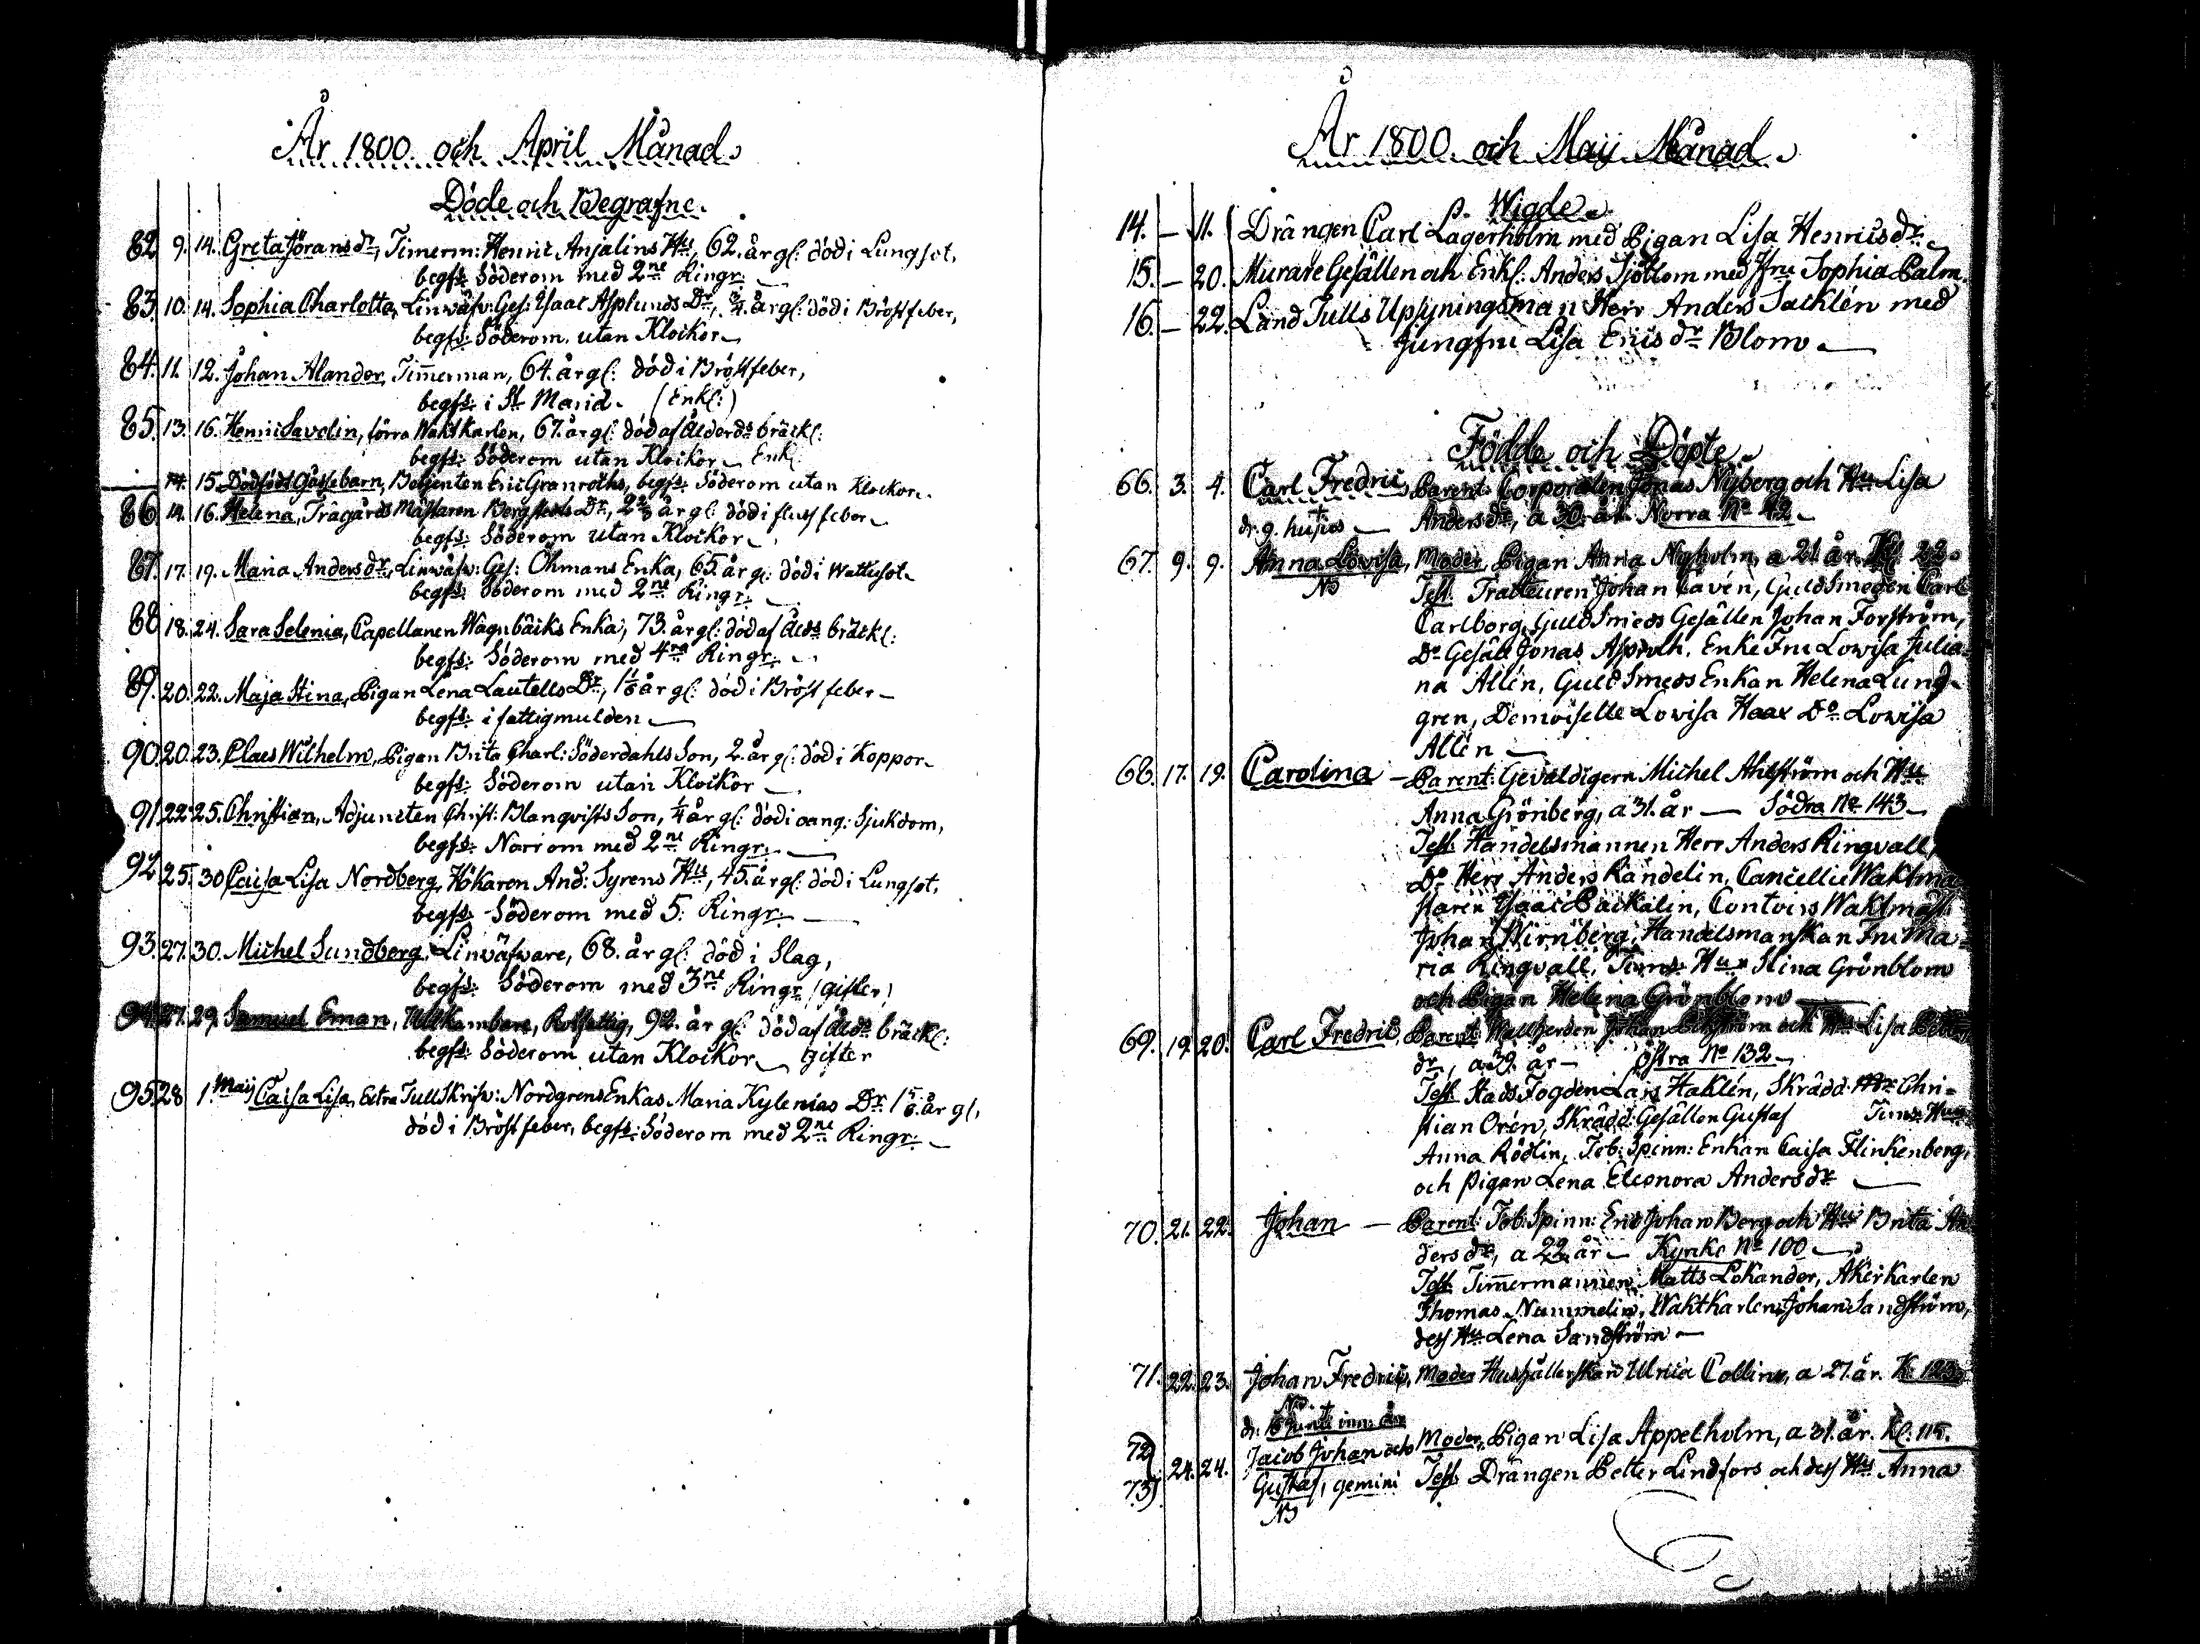 År 1800 och April Månad
Döde och Begrafne.
82 9. 14. Greta Jörans dr, Timerm: Henric Anjalins Hus, 62. år gl: död i Lungsot,
begfs: Söderom med 2ne Ringr:
83. 10. 14. Sophia Charlotta, Linwäfw: Ges: Isaac Asplunds Dr, 3/4. år gl: död i Bröstfeber,
begfs: Söderom utan Klockor
84. 11. 12. Johan Alander, Timmerman, 64. år gl: död i Bröstfeber,
begfs: i St Marie. (Enkl:)
85. 13. 16. Henric Savolin, förra Waktkarlen, 67. år gl: död af Ålderds bräckl:
begfs: Söderom utan Klockor Enkl
14. 15. Dödfödt Gåssebarn, Betjenten Eric Granroths, begfs: Söderom utan Klockor.
86 14. 16. Helena, Trägårds Mästaren Bergstedts Dr, år gl: död i flussfeber
begfs: Söderom utan Klockor
87. 17. 19. Maria Anders dr, Linwäfw: Ges: Öhmans Enka, 65. år gl: död i Wattusot
begfs: Söderom med 2ne Ringr:
88 18. 24. Sara Selenia, Capellanen Wagnbäcks Enka, 73. år gl: död af Ålds bräckl:
begfs: Söderom med 4ra Ringr:
89. 20. 22. Maja Stina, Pigan Lena Lautells Dr, 1 1/6 år gl: död i Bröstfeber
begfs: i fattigmulden
90. 20. 23. Claes Wilhelm, Pigan Brita Charl: Söderdahls Son, 2. år gl: död i Koppor
begfs: Söderom utan Klockor
91. 22. 25. Christian, Adjuncten Christ: Blanqvists Son, 1/4 år gl: död i oang: Sjukdom,
begfs: Norrom med 2ne Ringr:
92 25. 30 Caisa Lisa Nordberg, Hökaren And: Syrens Hus, 45. år gl: död i Lungsot,
begfs: Söderom med 5: Ringr:
93. 27. 30. Michel Sundberg, Linwäfware, 68. år gl: död i Slag,
begfs: Söderom med 3ne Ringr: (gifter)
94. 27. 29. Samuel Eman, Ullkambare, Rotfattig, 92. år gl: död af Ålds bräckl:
begfs: Söderom utan Klockor gifter
95. 28 1. Maij Caisa Lisa, Extra Tull Skrifw: Nordgrens Enkas Maria Kylenias Dr 1 5/6. år gl,
död i Bröstfeber, begfs: Söderom med 2ne Ringr:
År 1800 och Maij Månad
Wigde
14. – 11. Drängen Carl Lagerholm med Pigan Lisa Henrics dr
15. – 20. Murare Gesällen och Enkl: Anders Sjöblom med Jfru Sophia Palm
16. – 22. Land Tulls Upsyningsman Herr Anders Sacklén med
Jungfru Lisa Erics dr Blom
Födde och Döpte
66. 3. 4. Carl Fredric, Parent: Corporalen Jonas Nyberg och Hu Lisa
Anders dr, a 30. år. Norra No 42
67. 9. 9. Anna Lovisa, Moder Pigan Anna Nyholm, a 21. år. Kl. 22
NB Test: Tracteuren Johan Cavén, Guldsmeden Carl
Carlborg, Guld Smeds Gesällen Johan Forström,
Do Gesäll Jonas Asproth, Enke Fru Lovisa Julia-
na Allén, Guld Smeds Enkan Helena Lund-
gren, Demoiselle Lovisa Haax Do Lovisa
Allén
68. 17. 19. Carolina – Parent: Gevaldigern Michel Ahlström och Hu
Anna Grönberg, a 31. år — Södra No 143
Test: Handelsmannen Herr Anders Ringvall,
Do Herr Anders Randelin, Cancellie Waktmä
staren Isaac Backalin, Contoirs Waktmäst:
Johan Wirnberg, Handelsmanskan Fru Ma-
ria Ringvall, Tims Hu Stina Grönblom
och Pigan Helena Grönblom
69. 19. 20. Carl Fredric, Parent: Johan och Hu Lisa
dr, a 39. år – Östra No 132
Test: Stads Fogden Lars Haklén, Skrädd: Chri-
stian Orén, Skrädd: Gesällen Gustaf Tims Hus
Anna Rödlin, Tob: Spinn: Enkan Caisa Flinkenberg,
och Pigan Lena Eleonora Anders dr
70. 21. 22. Johan – Parent: Tob: Spinn: Eric Johan Berg och Hu Brita An
ders dr, a 22 år – Kyrko No 100
Test: Timmermannen Matts Lokander, Åkerkarlen
Thomas Nummelin, Waktkarlen Johan Sandström,
dess Hu Lena Sandström
71. 22. 23. Johan Fredric, Moder Hushållerskan Ulrica Collin, a 27. år. K. 123
72) Jacob Johan och Moder, Pigan Lisa Appelholm, a 31. år. Kl. 115.
73) 24. 24. Gustaf, gemini Test: Drängen Petter Lindfors och dess Hus Anna
NB